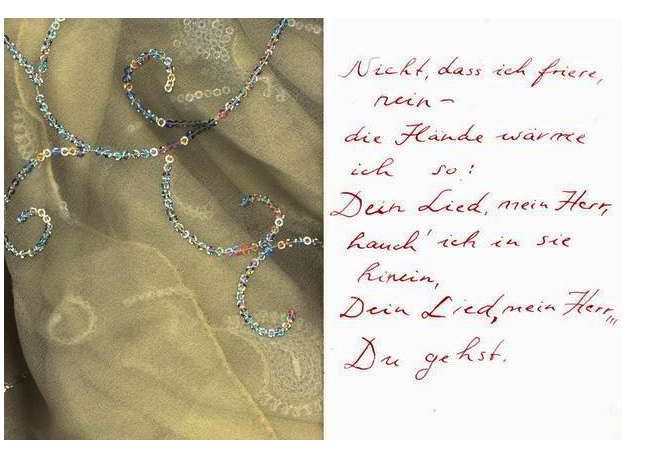 Nicht, dass ich friere,
nein –
die Hände wärme
ich so:
Dein Lied, mein Herr,
hauch' ich in sie
hinein,
Dein Lied, mein Herr,,,
Du gehst.